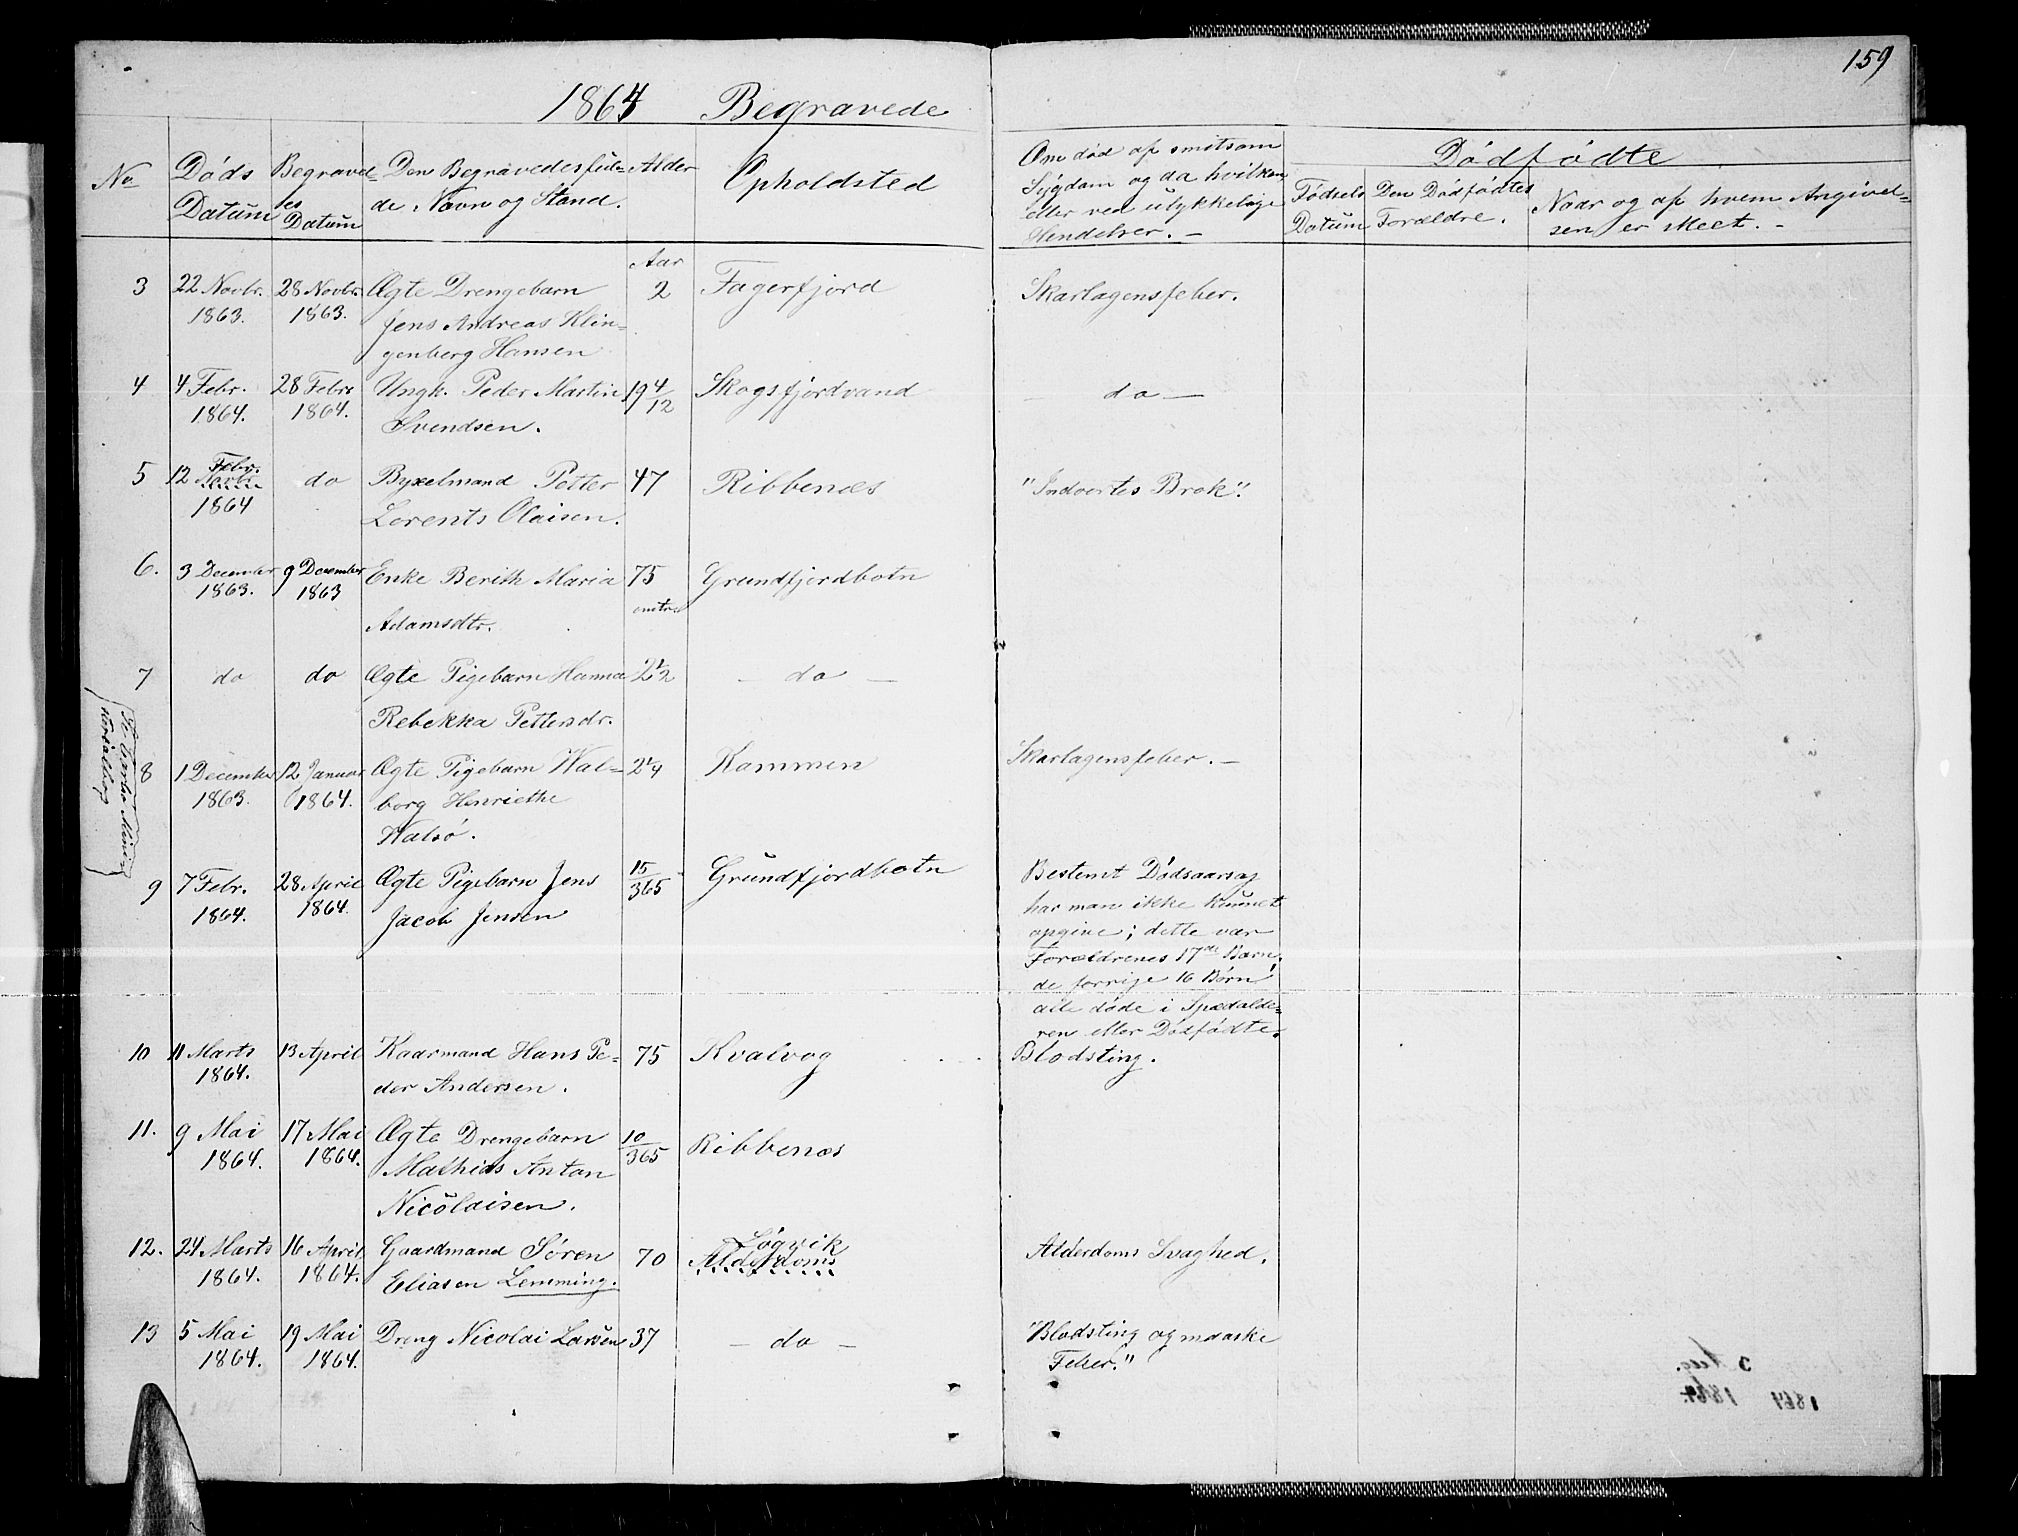 159
1864 Begravede
No
Døds Datum
Begravedes Datum
Den Begravedes fulde Navn og Stand.
Alder
Opholdsted
Om død af smitsom Sygdom og da hvilken eller ved ulykkelige Hendelser. —
Dødfødte
Fødsels Datum
Den Dødfødtes Forældre.
Naar og af hvem Angivelsen er skeet. -
3 22 Novbr. 28 Novbr. Ægte Drengebarn Aar 2 Fagerfjord Skarlagensfeber.
1863. 1863. Jens Andreas Klin=
genberg Hansen
4 4 Febr. 28 Febr. Ungk. Peder Martin 19 4/12 Skogsfjordvand — do —
1864. 1864. Svendsen.
5 12 Febr. Novbr. do Byxelmand Petter 47 Ribbenæs "Indvortes Brok".
1864 Lorents Olaisen.
6. 3 December 9 December Enke Berith Maria 75 Grundfjordbotn
1863. 1863 Adamsdtr.
7 do do Ægte Pigebarn Hanna 2 1/2 — do —
Rebekka Pettersdr.
8 1 December 12 Januar Ægte Pigebarn Wal= 2 1/4 Kammen Skarlagensfeber. —
1863. 1864. borg Henriethe
Walsø.
9 7 Febr. 28 April Ægte Pigebarn Jens 15/365 Grundfjordbotn Bestemt Dødsaarsag
1864. 1864. Jacob Jensen har man ikke kunnet
opgive; dette var
Forældrenes 17de Barn,
de forrige 16 Børn
alle døde i Spædalde=
ren eller Dødfødte.
10 11 Marts 13 April Kaarmand Hans Pe= 75 Kvalvog Blodsting.
1864. der Andersen.
11. 9 Mai 17 Mai Ægte Drengebarn 10/365 Ribbenæs
1864. 1864. Mathias Antan
Nicolaisen.
12. 24 Marts 16 April Gaardmand Søren 70 Løgvik Alderdoms Alderdoms Svaghed.
1864. 1864. Eliasen Lemming.
13 5 Mai 19 Mai Dreng Nicolai Larsen 37 — do — "Blodsting og maaske
1864. 1864. Feber."